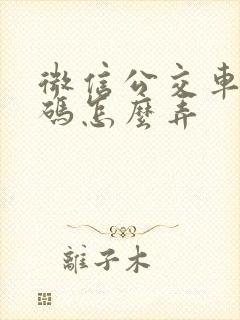 微信公交車
碼怎麼弄
離子木